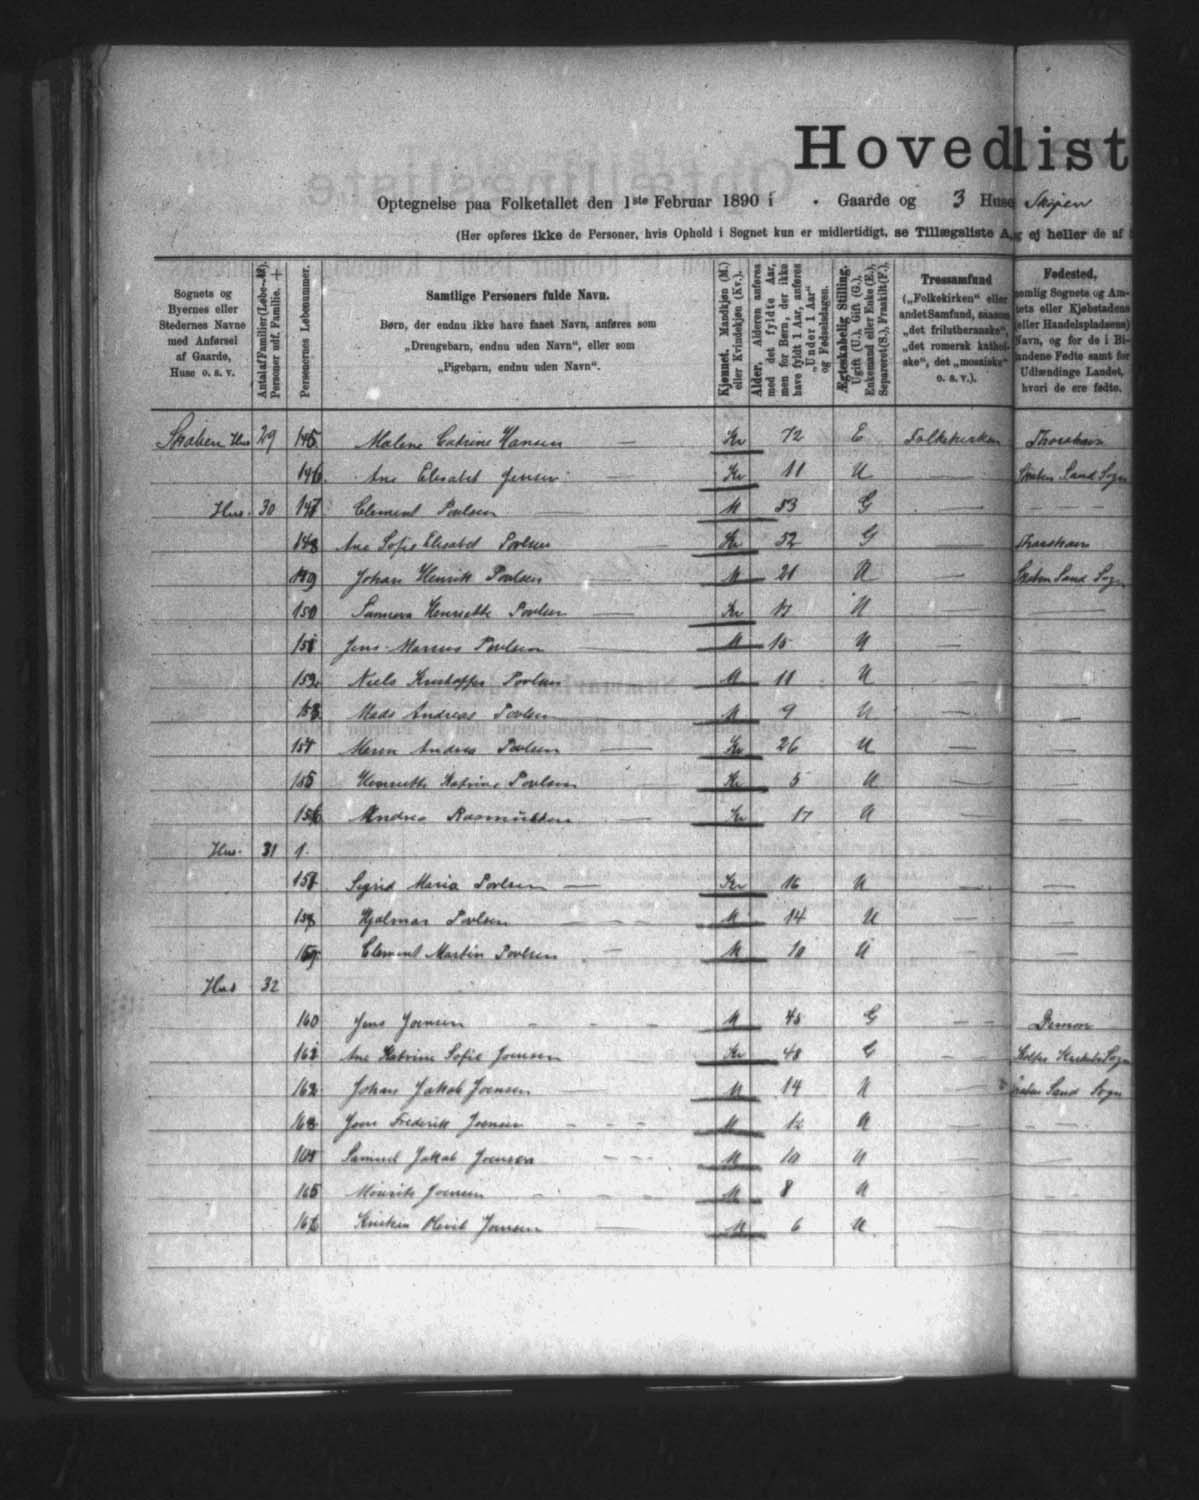 Hovedlist
Optegnelse paa Folketallet den 1ste Februar 1890 i Gaarde og 3 Huse
(Her opføres ikke de Personer, hvis Ophold i Sognet kun er midlertidigt, se Tillægsliste A, ej heller de af
Sognets og Byernes eller Stedernes Navne med Anførsel af Gaarde, Huse o. s. v.
Personernes Løbenummer.
Samtlige Personers fulde Navn.
Børn, der endnu ikke have faaet Navn, anføres som
„Drengebarn, endnu uden Navn“, eller som
„Pigebarn, endnu uden Navn“.
Kjønnet. Mandkjøn (M.) eller Kvindekjøn (Kv.).
Alder. Alderen anføres med det fyldte Aar, men for Børn, der ikke have fyldt 1 Aar, anføres „Under 1 Aar“ og Fødselsdagen.
Ægteskabelig Stilling. Ugift (U.), Gift (G.), Enkemand eller Enke (E.), Separeret (S.), Fraskilt (F.).
Trossamfund
(„Folkekirken“ eller
andet Samfund, saasom
„det frilutheranske“,
„det romersk kathol-
ske“, det „mosaiske“
o. s. v.).
Fødested,
nemlig Sognets og Am-
tets eller Kjøbstadens
(eller Handelspladsens)
Navn, og for de i Bi-
landene Fødte samt for
Udlændinge Landet,
hvori de ere fødte.
Hus 29 145 Malene Catrine Hansen Kv 72 E Folkekirken Thorshavn
146 Ane Elisabet Jensen Kv 11 U Sand Sogn
Hus 30 147 Clement Povlsen M 53 G
148 Ane Sofie Elisabet Povlsen Kv 52 G Thorshavn
149 Johan Henrik Povlsen M 21 U Sand Sogn
150 Henriette Povlsen Kv 17 U
151 Jens Marius Povlsen M 15 U
152 Niels Kristoffer Povlsen M 11 U
153 Mads Andreas Povlsen M 9 U
154 Maren Andrea Povlsen Kv 26 U
155 Henriette Katrine Povlsen Kv 5 U
156 Andrea Rasmussen Kv 17 U
Hus 31 1
157 Sigrid Maria Povlsen Kv 16 U
158 Hjalmar Povlsen M 14 U
159 Clement Martin Povlsen M 10 U
Hus 32
160 Jens Joensen M 45 G
161 Ane Katrine Sofie Joensen Kv 48 G Sogn
162 Johan Jakob Joensen M 14 U Sand Sogn
163 Frederik Joensen M 12 U
164 Samuel Jakob Joensen M 10 U
165 Joensen M 8 U
166 Joensen M 6 U